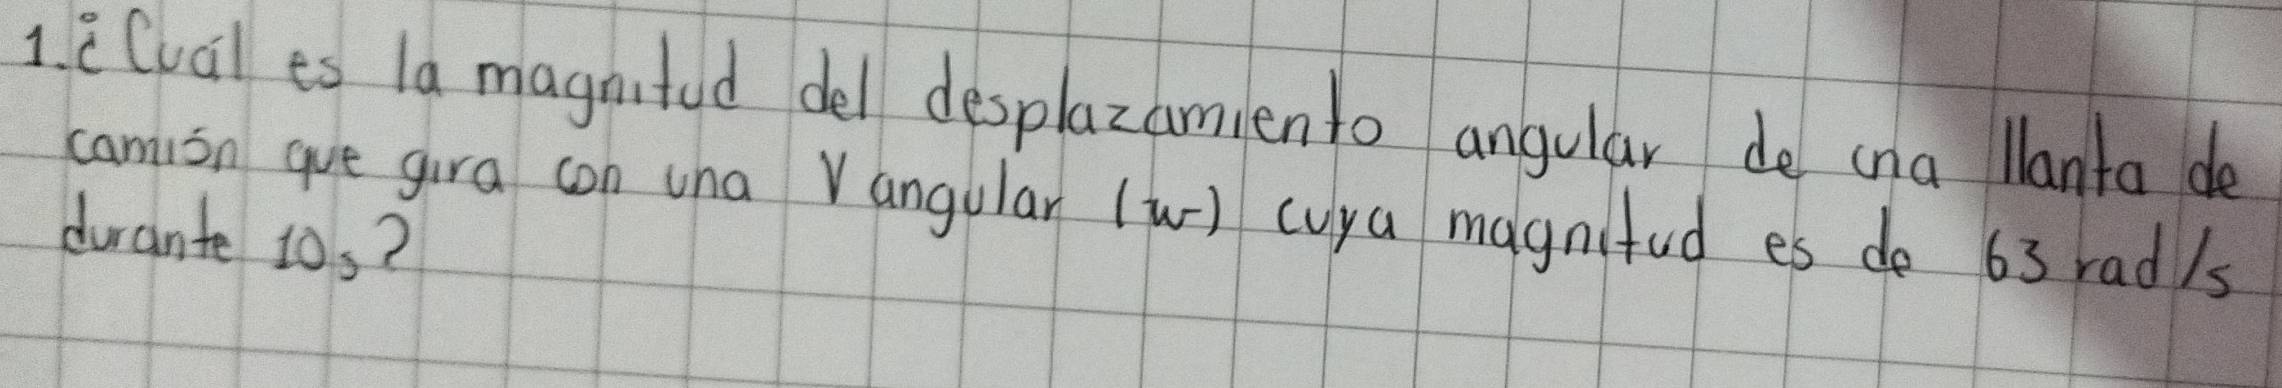 1. ¿Cuál es la magnitud del desplazamiento angular de una llanta de
camión que gira con una V angular (w) cuya magnitud es de 63 rad/s
durante 10s?